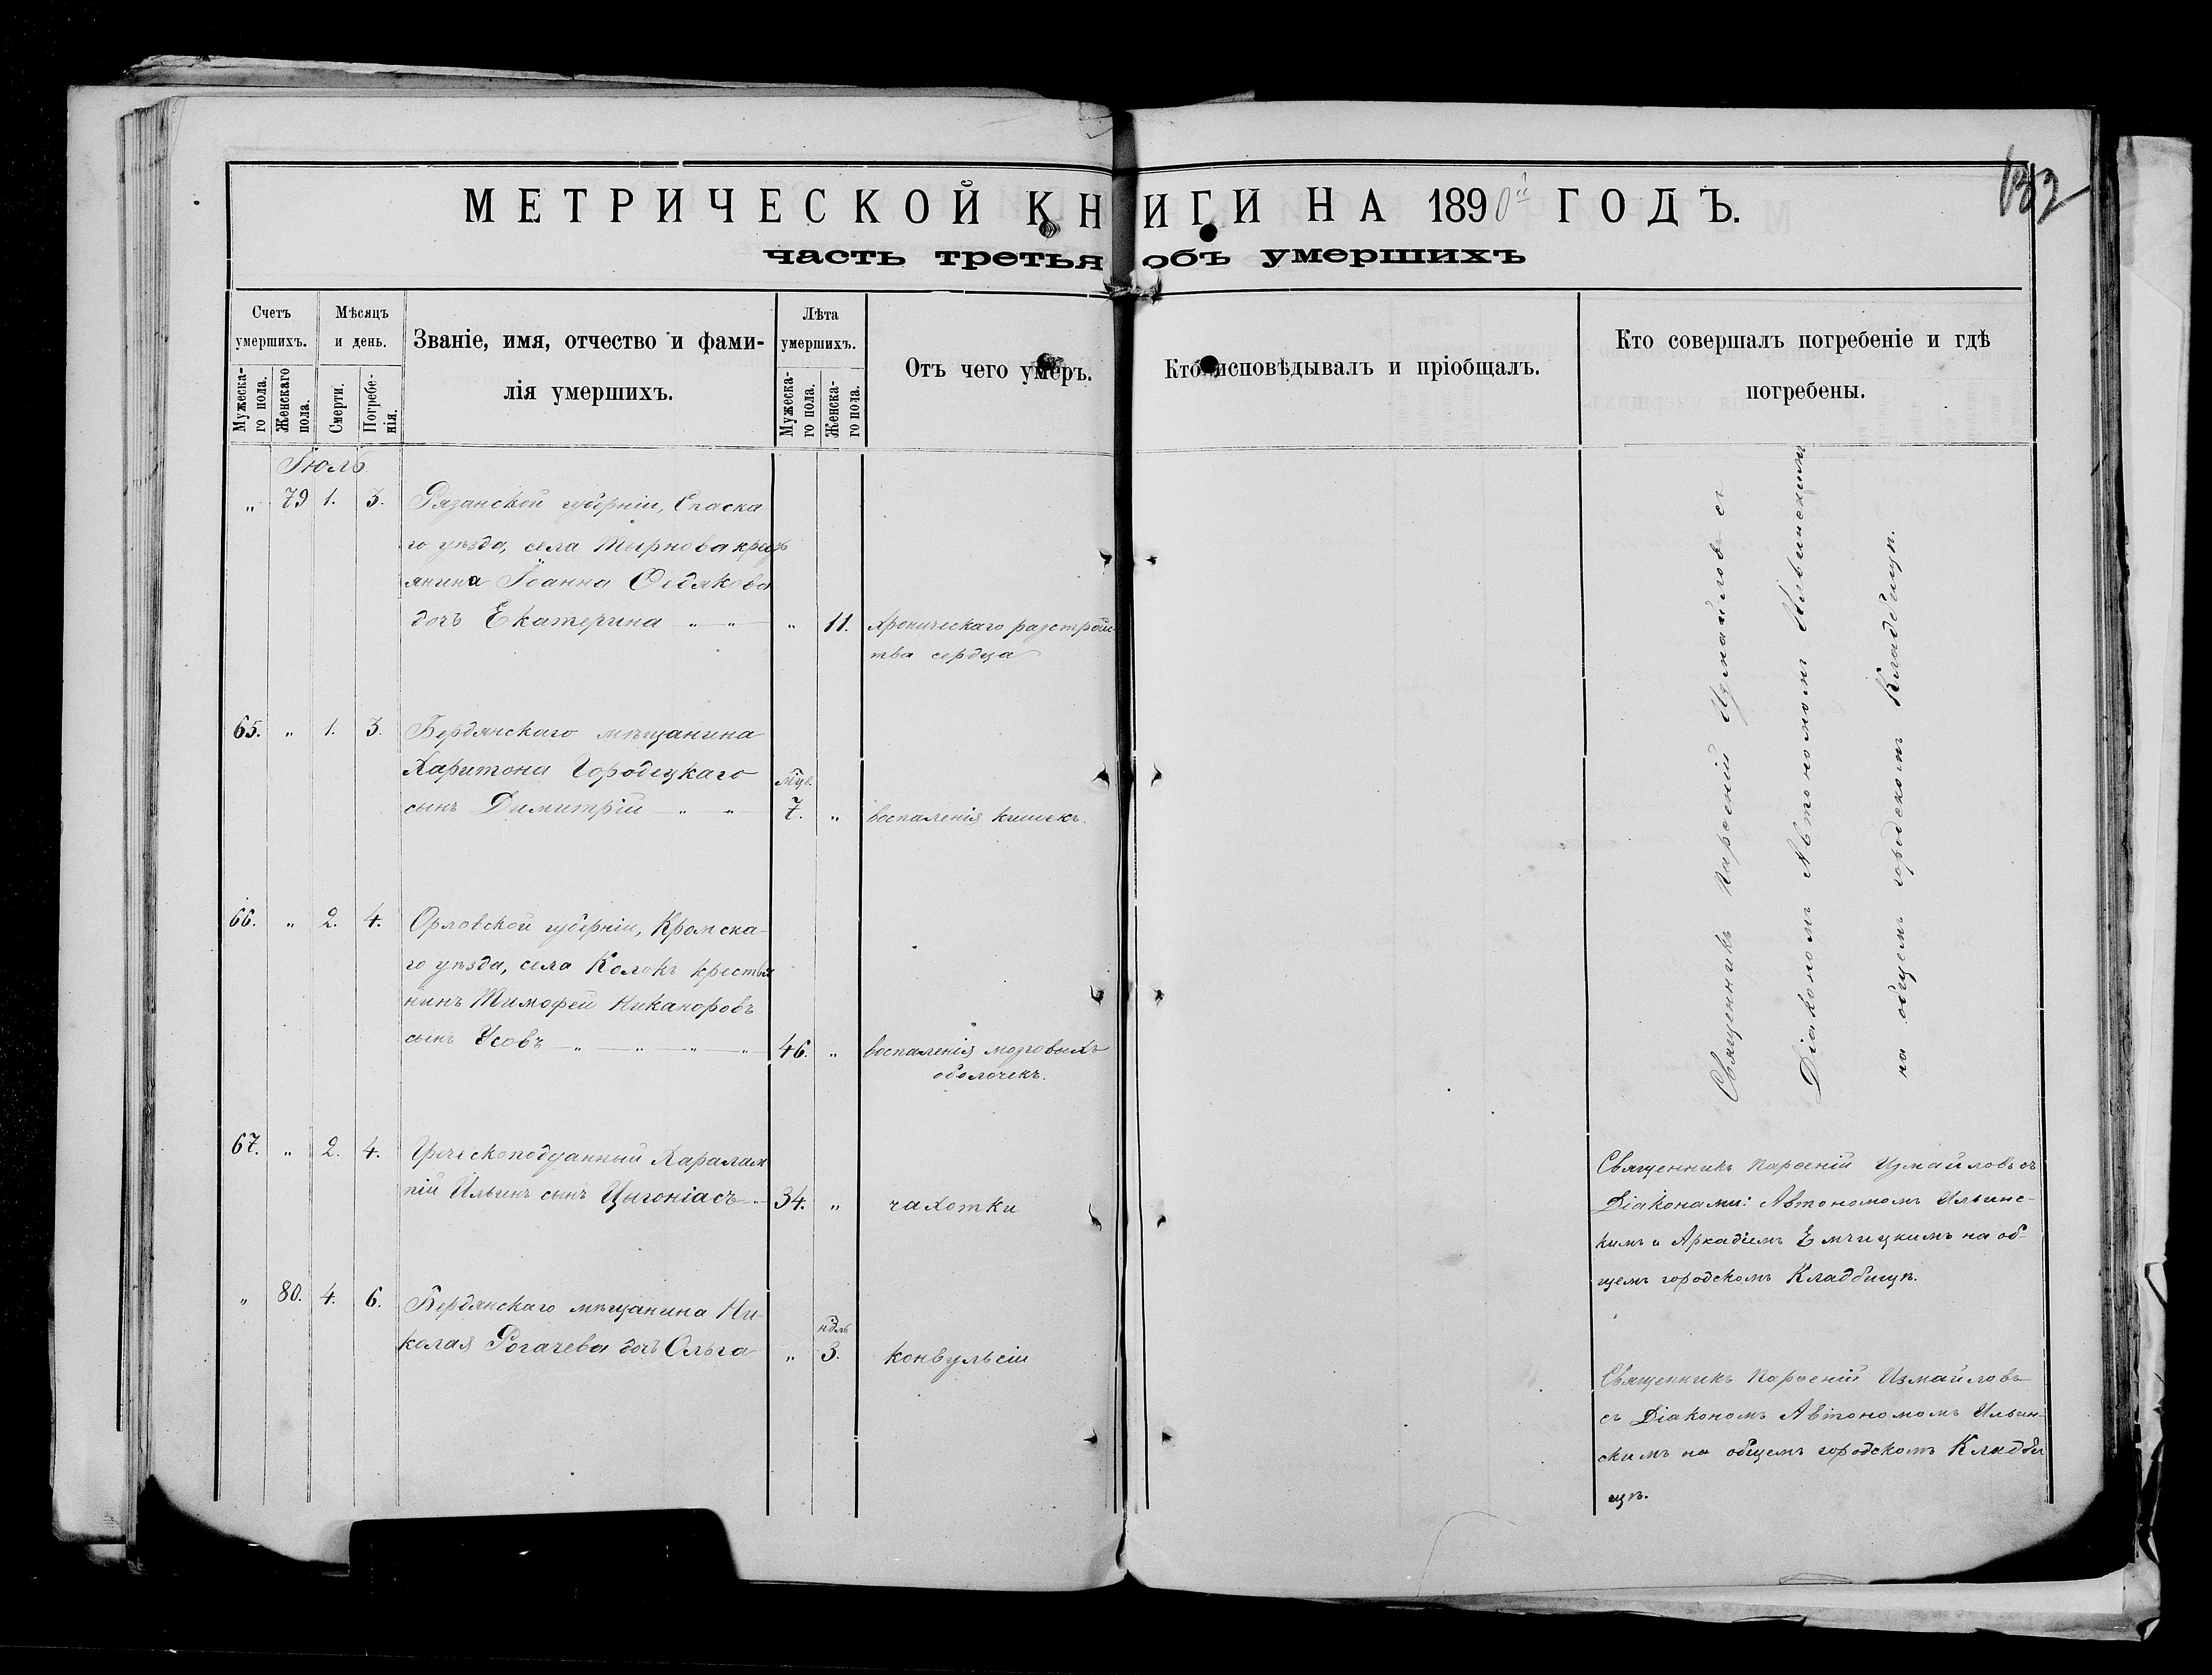 132
МЕТРИЧЕСКОЙ КНИГИ НА 1890й ГОДЪ.
часть третья объ умершихъ
Счетъ умершихъ.
Мужеска-го пола.
Женскаго пола.
Мѣсяцъ и день.
Смерти.
Погребе-нія.
Званіе, имя, отчество и фами-
лія умершихъ.
Лѣта умершихъ.
Мужеска-го пола.
Женска-го пола.
Отъ чего умеръ.
Кто исповѣдывалъ и пріобщалъ.
Кто совершалъ погребеніе и гдѣ
погребены.
Іюль
„ 79 1. 3. Рязанской губерніи, Спаска
го уѣзда, села Тырнова крест
янина Іоанна Федякова
дочь Екатерина „ „ „ 11. Хроническаго разстройс
тва сердца
65. „ 1. 3. Бердянскаго мѣщанина
Харитона Городецкаго мѣц.
сынъ Димитрій „ „ 7. „ воспаленія кишекъ.
66. „ 2. 4. Орловской губерніи, Кромска-
го уѣзда, села Колокъ крестья
нинъ Тимофей Никаноровъ
сынъ Усовъ „ „ „ „ 46. „ воспаленія мозговыхъ
оболочекъ.
Священникъ Парѳеній Измайловъ съ
Діакономъ Автономомъ Ильинскимъ
на общемъ городскомъ Кладбищѣ.
67. „ 2. 4. Греческоподданный Харалам
пій Ильинъ сынъ Цыгоніасъ „ 34. „ чахотки
Священникъ Парѳеній Измайловъ съ
Діаконами: Автономомъ Ильинс-
кимъ и Аркадіемъ Емчицкимъ на об-
щемъ городскомъ Кладбищѣ.
„ 80. 4. 6. Бердянскаго мѣщанина Ни-
колая Рогачева дочь Ольга „ ндль 3. конвульсіи
Священникъ Парѳеній Измайловъ
съ Діакономъ Автономомъ Ильин-
скимъ на общемъ городскомъ Кладби
щѣ.